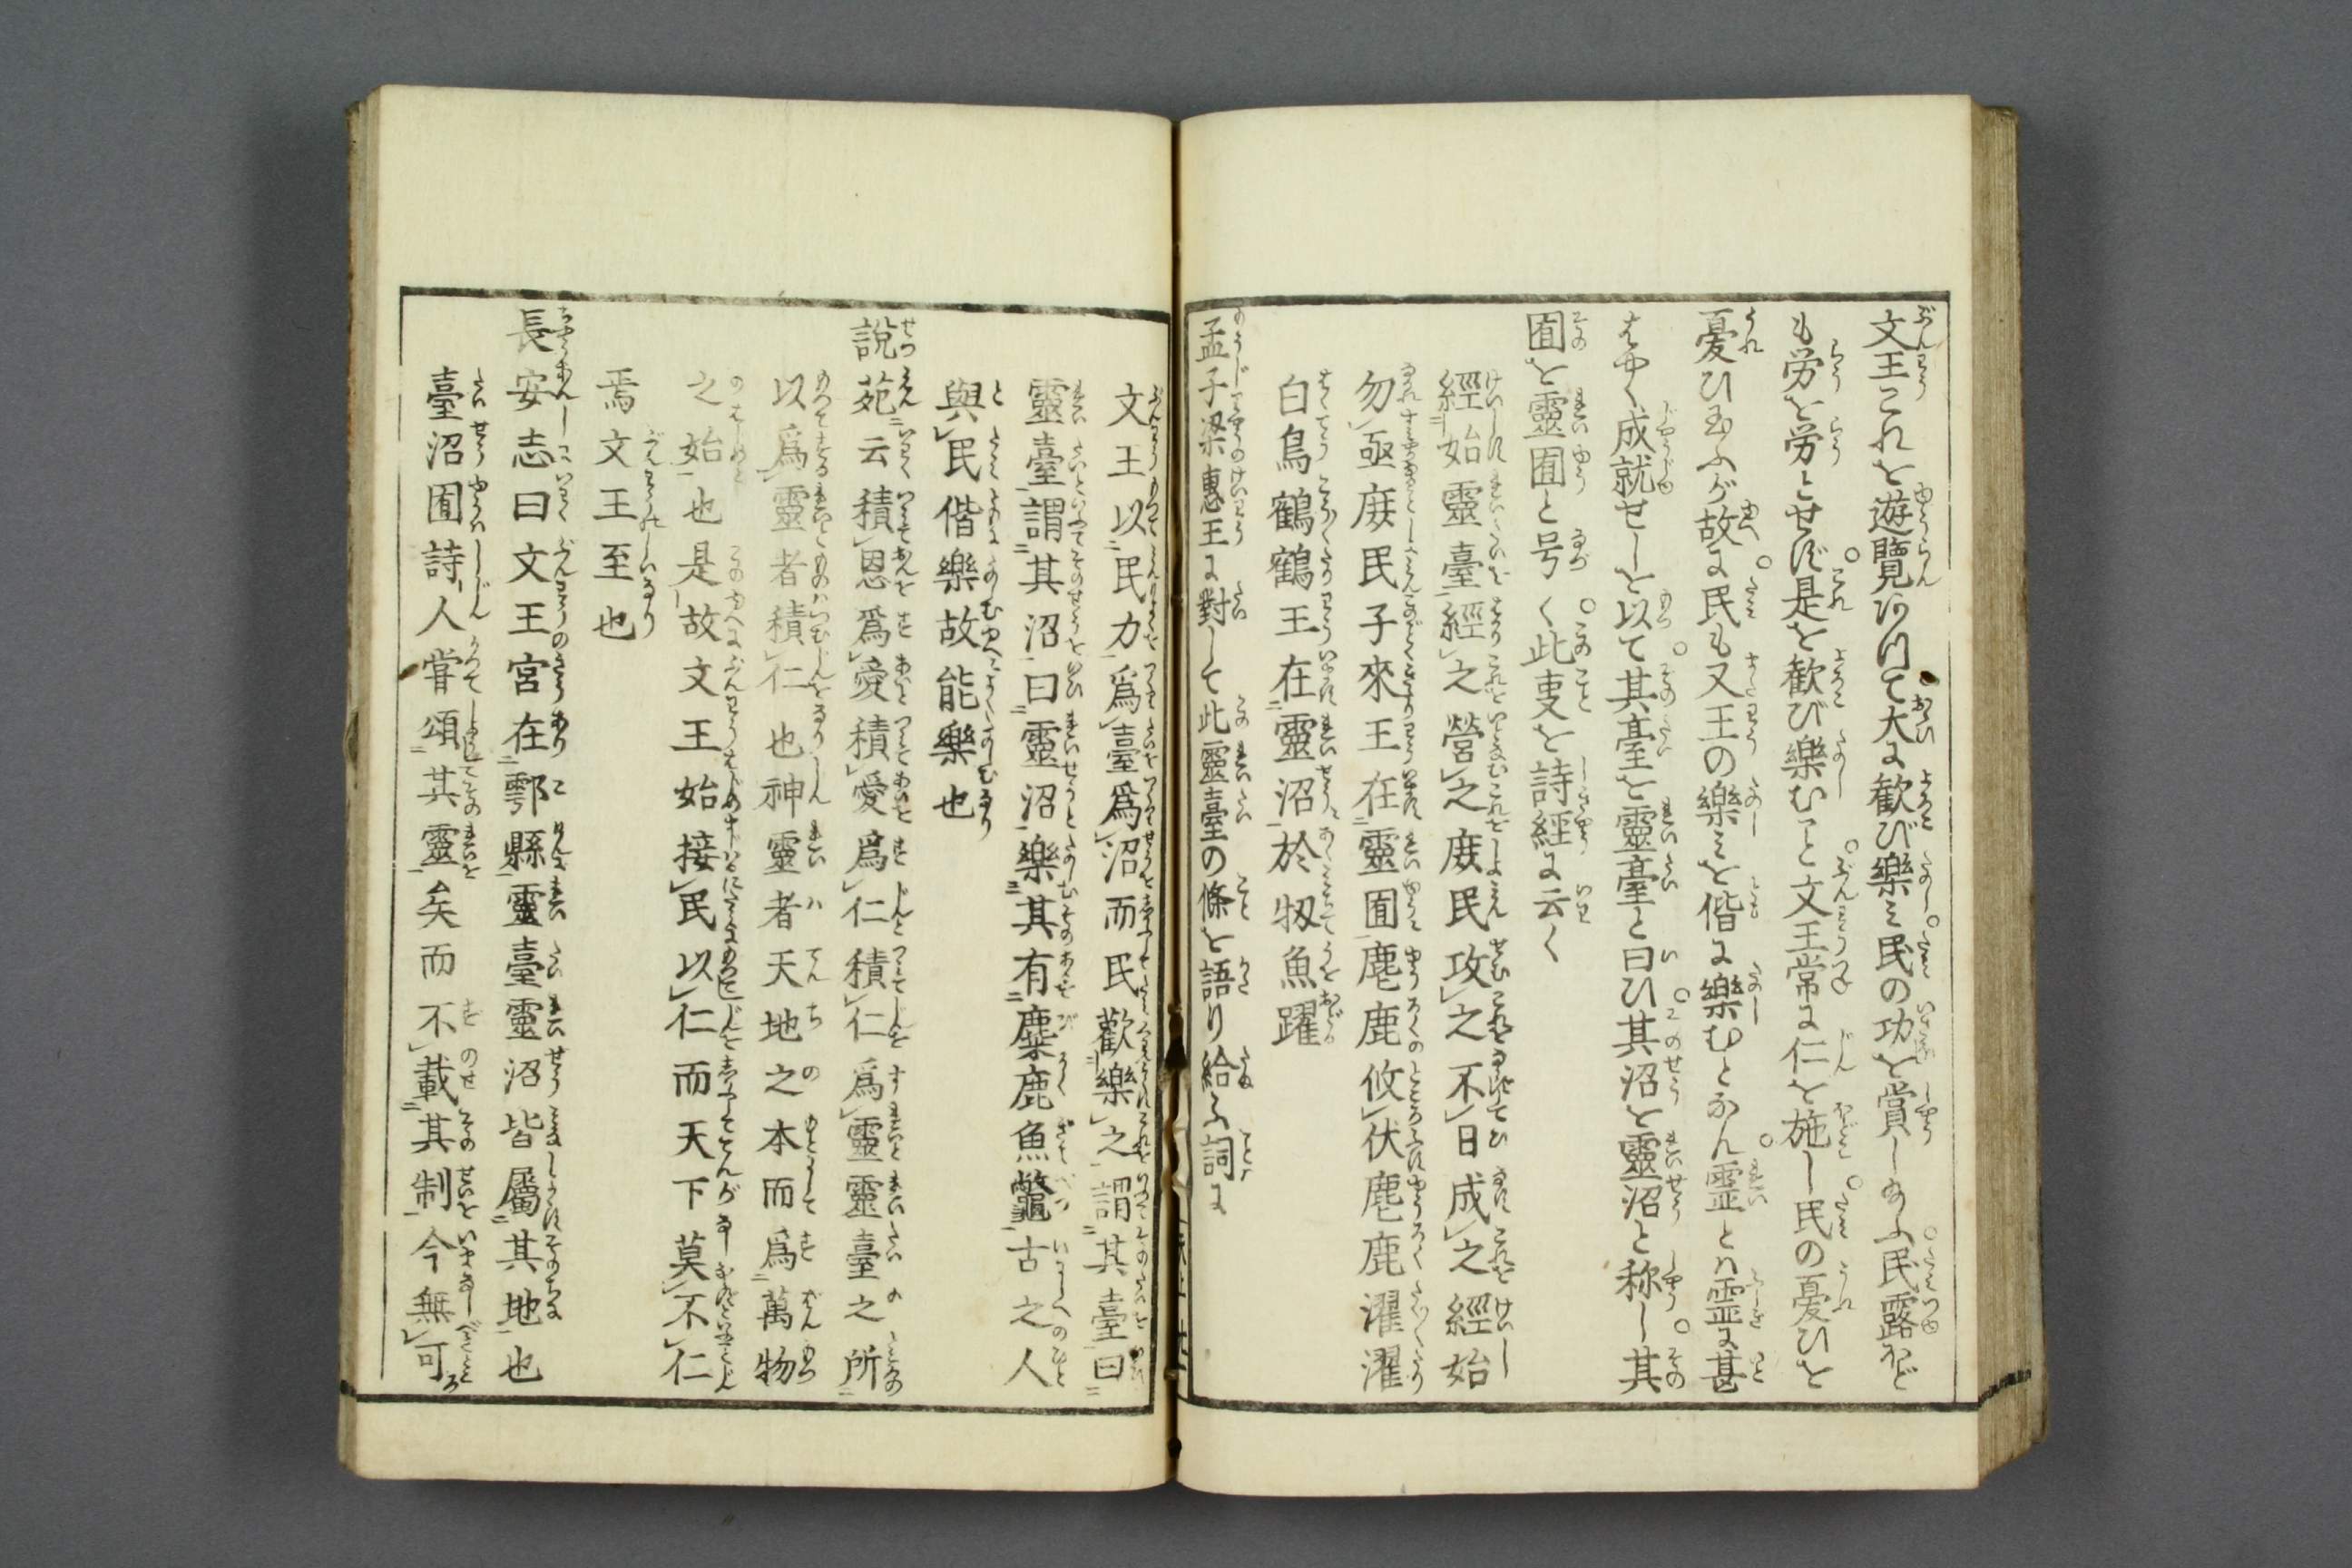 文王これを遊覧ありて大に歓び樂ミ民の功を賞し給ふ民露ほど
も労を労とせず是を歓び樂むこと文王常に仁を施し民の憂ひを
憂ひ玉ふが故に民も又王の樂ミを偕に樂むとなん霊とハ霊に甚
はやく成就せしを以て其臺を靈臺と曰ひ其沼を靈沼と称し其
囿を靈囿と号く此叓を詩経に云く
經始靈臺經之營之庻民攻之不日成之經始
勿亟庻民子來王在靈囿麀鹿攸伏麀鹿濯濯
白鳥鶴鶴王在靈沼於牣魚躍
孟子梁惠王に對して此靈臺の條を語り給ふ詞に
文王以民力爲臺爲沼而民歡樂之謂其臺曰
靈臺謂其沼曰靈沼樂其有麋鹿魚鼈古之人
與民偕樂故能樂也
說苑云積恩爲愛積愛爲仁積仁爲靈靈臺之所
以爲靈者積仁也神靈者天地之本而爲萬物
之始也是故文王始接民以仁而天下莫不仁
焉文王至也
長安志曰文王宮在鄠縣靈臺靈沼皆屬其地也
臺沼囿詩人甞頌其靈矣而不載其制今無可